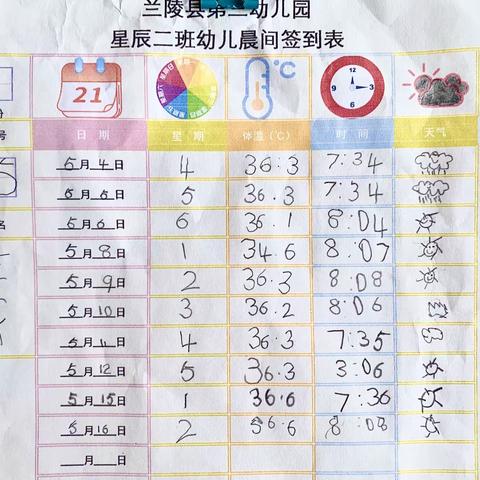 兰陵县第二幼儿园
星辰二班幼儿晨间签到表
21 °C 12 3 6 9
日期 星期 体温(℃) 时间 天气
号
5月4日 4 36.3 7:34
5月5日 5 36.3 7:34
5月6日 6 36.1 8:04
名
5月8日 1 34.6 8:07
5月9日 2 36.3 8:08
5月10日 3 36.2 8:06
5月11日 4 36.3 7:35
5月12日 5 36.3 3:06
5月15日 1 36.6 7:36
5月16日 2 36.6 8:08
月 日